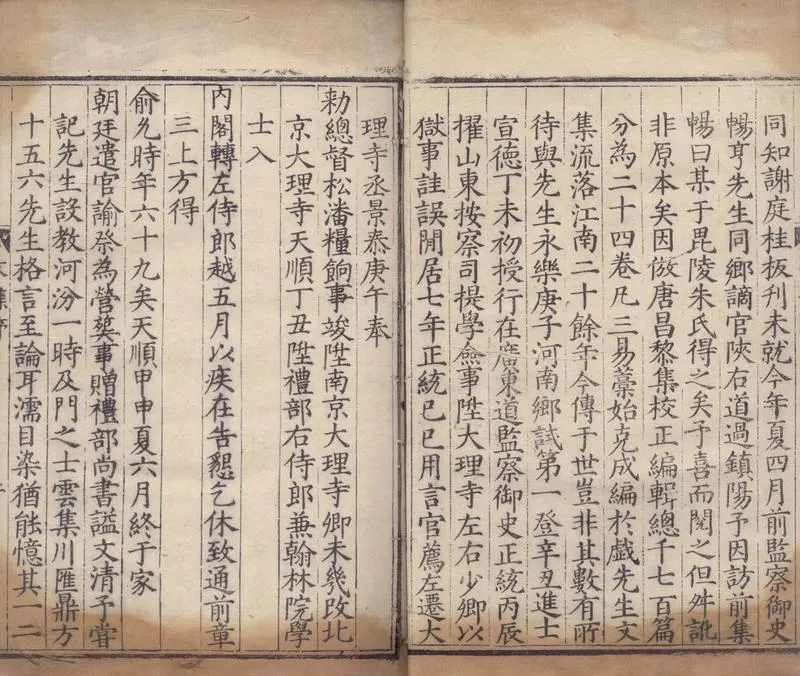 同知謝庭桂板刊未就今年夏四月前監察御史
暢亨先生同鄉謫官陝右道過鎮陽予因訪前集
暢曰某于毘陵朱氏得之矣予喜而閱之但舛訛
非原本矣因倣唐昌黎集校正編輯總千七百篇
分為二十四卷凡三易藁始克成編於戲先生文
集流落江南二十餘年今傳于世豈非其數有所
待與先生永樂庚子河南鄉試第一登辛丑進士
宣德丁未初授行在廣東道監察御史正統丙辰
擢山東按察司提學僉事陞大理寺左右少卿以
獄事詿誤閒居七年正統己巳用言官薦左遷大
理寺丞景泰庚午奉
勑總督松潘糧餉事竣陞南京大理寺卿未幾改北
京大理寺天順丁丑陞禮部右侍郎兼翰林院學
士入
內閣轉左侍郎越五月以疾在告懇乞休致通前章
三上方得
俞允時年六十九矣天順甲申夏六月終于家
朝廷遣官諭祭為營葬事贈禮部尚書謚文清予嘗
記先生設教河汾一時及門之士雲集川匯鼎方
十五六先生格言至論耳濡目染猶能憶其一二